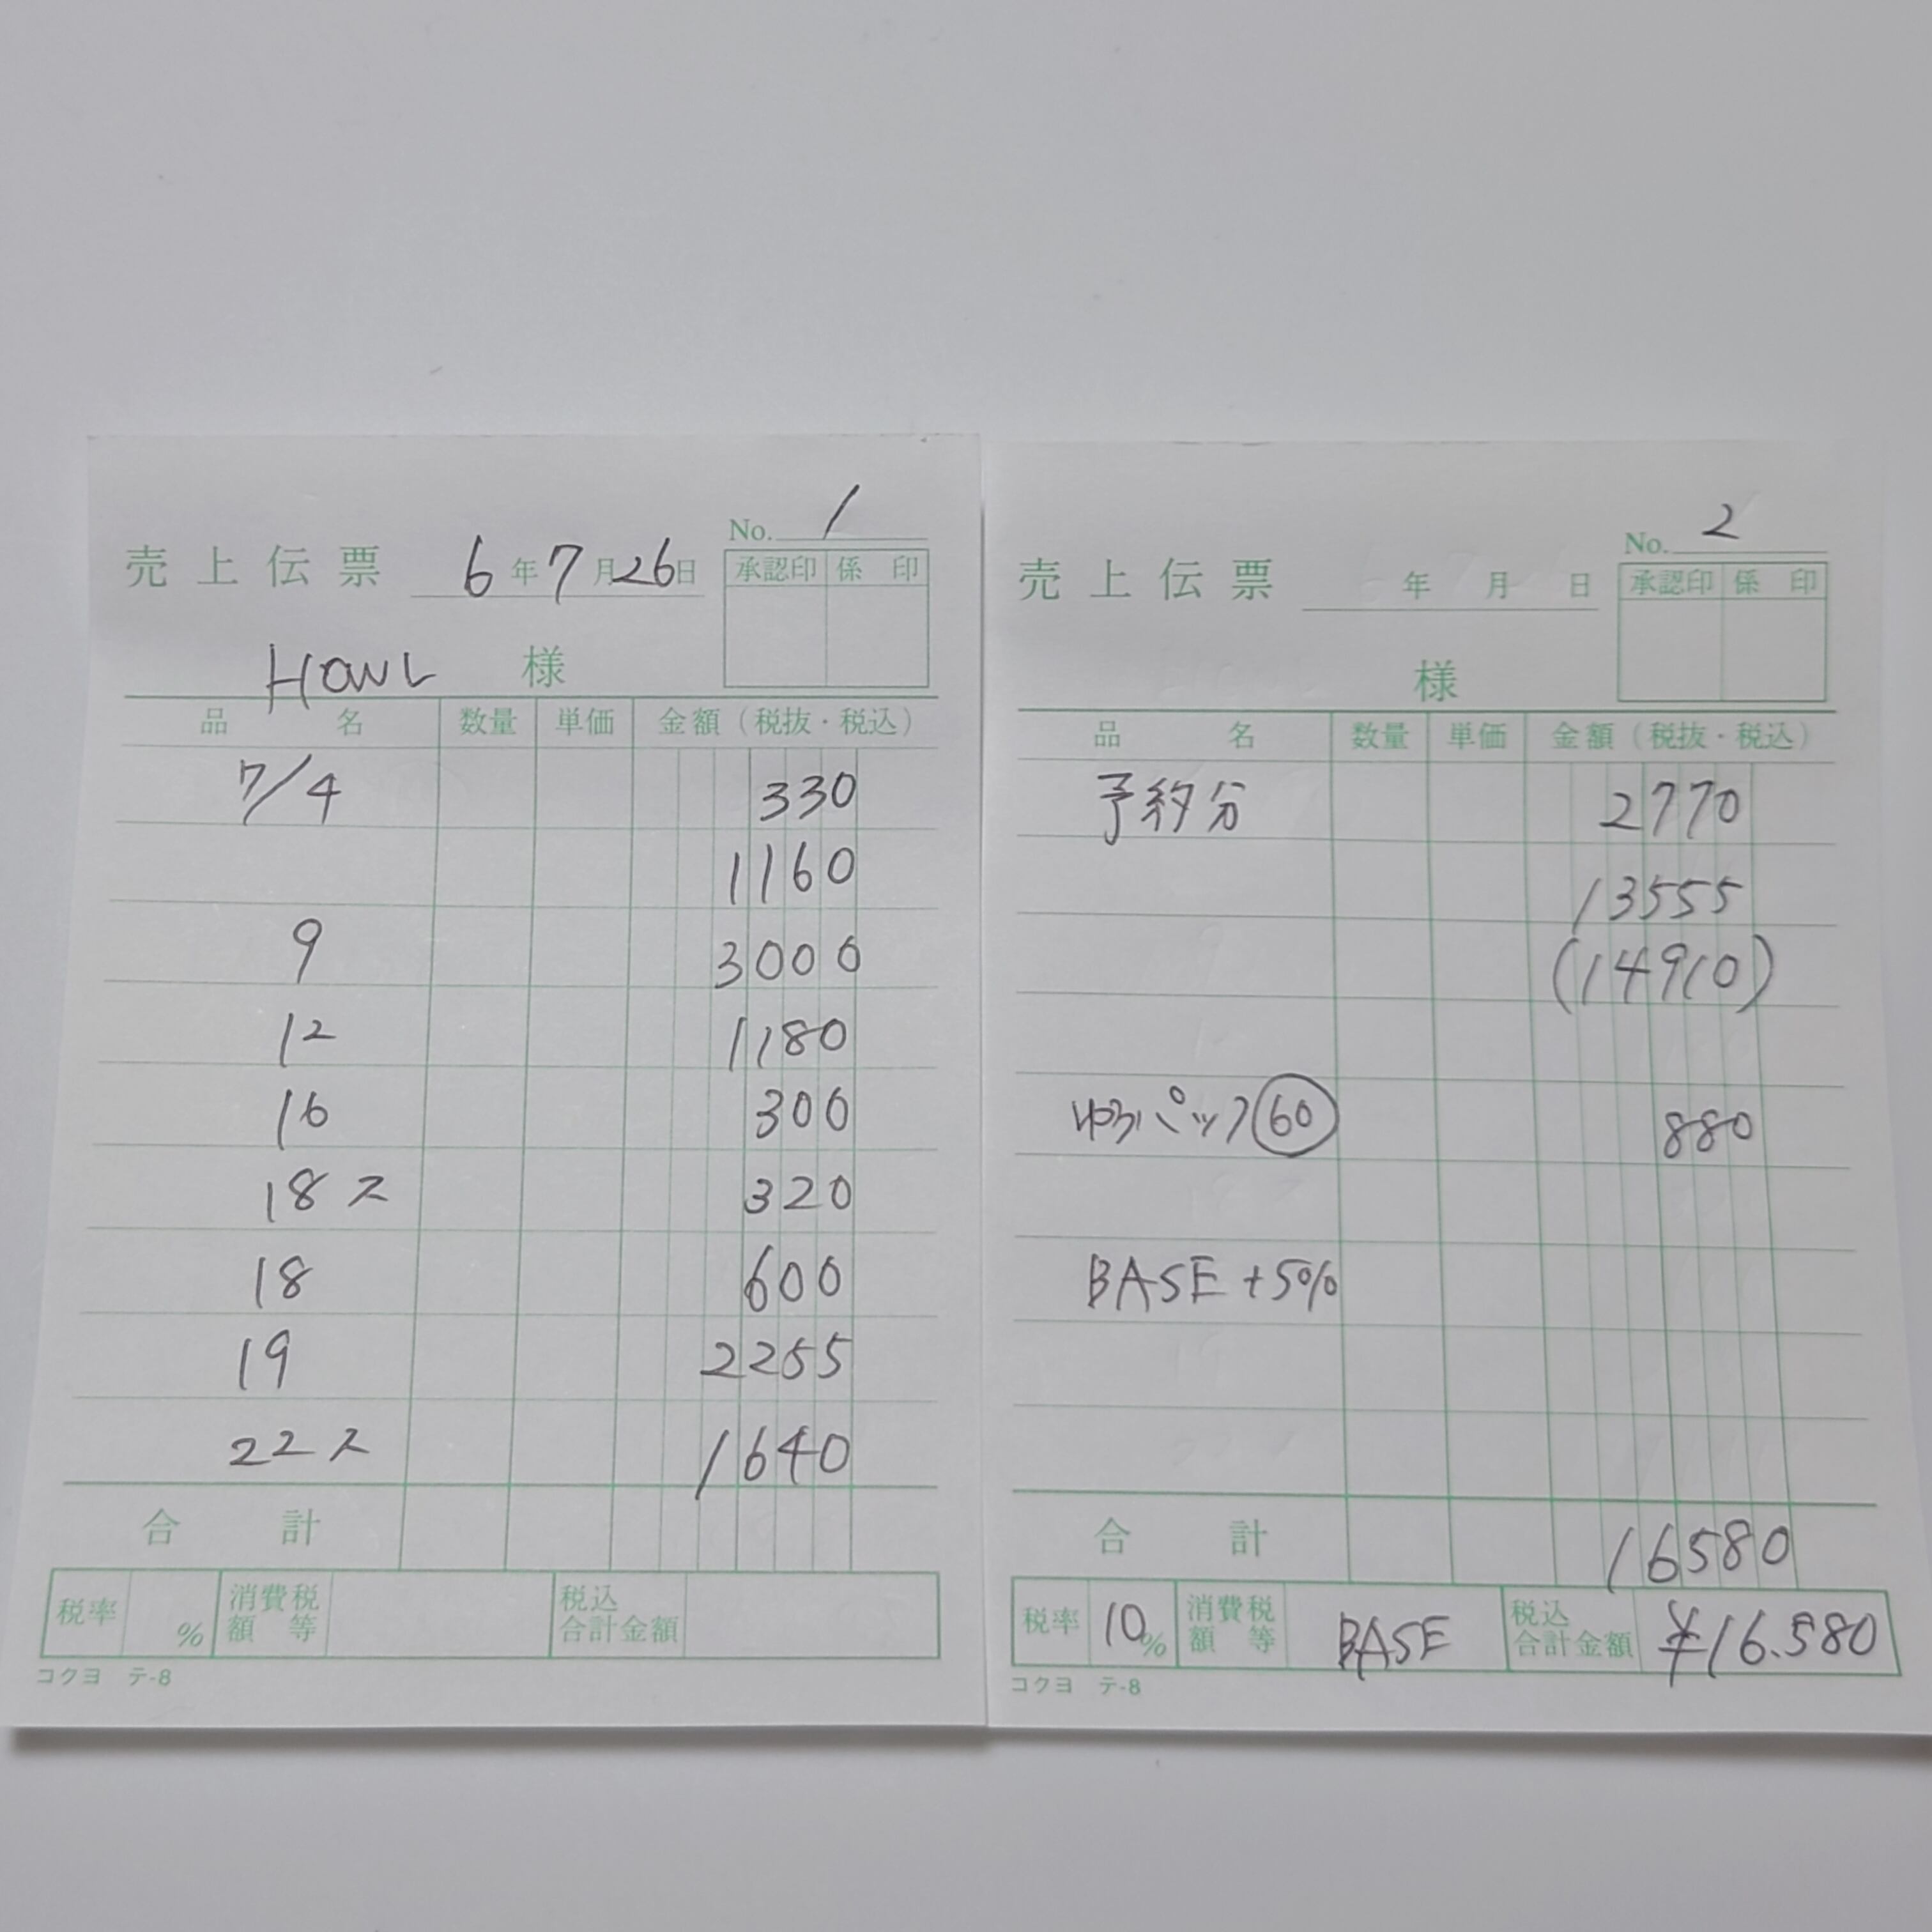 売上伝票 6年7月26日 No. 1
承認印 係印
HOWL 様
品名 数量 単価 金額（税抜・税込）
7/4 330
1160
9 3000
12 1180
16 300
18ス 320
18 600
19 2255
22ス 1640
合計
税率 % 消費税額等 税込合計金額
コクヨ テ-8
売上伝票 年 月 日 No. 2
承認印 係印
様
品名 数量 単価 金額（税抜・税込）
予約分 2770
13555
(14910)
ゆうパック 60 880
BASE +5%
合計 16580
税率 10% 消費税額等 BASE 税込合計金額 ¥16.580
コクヨ テ-8